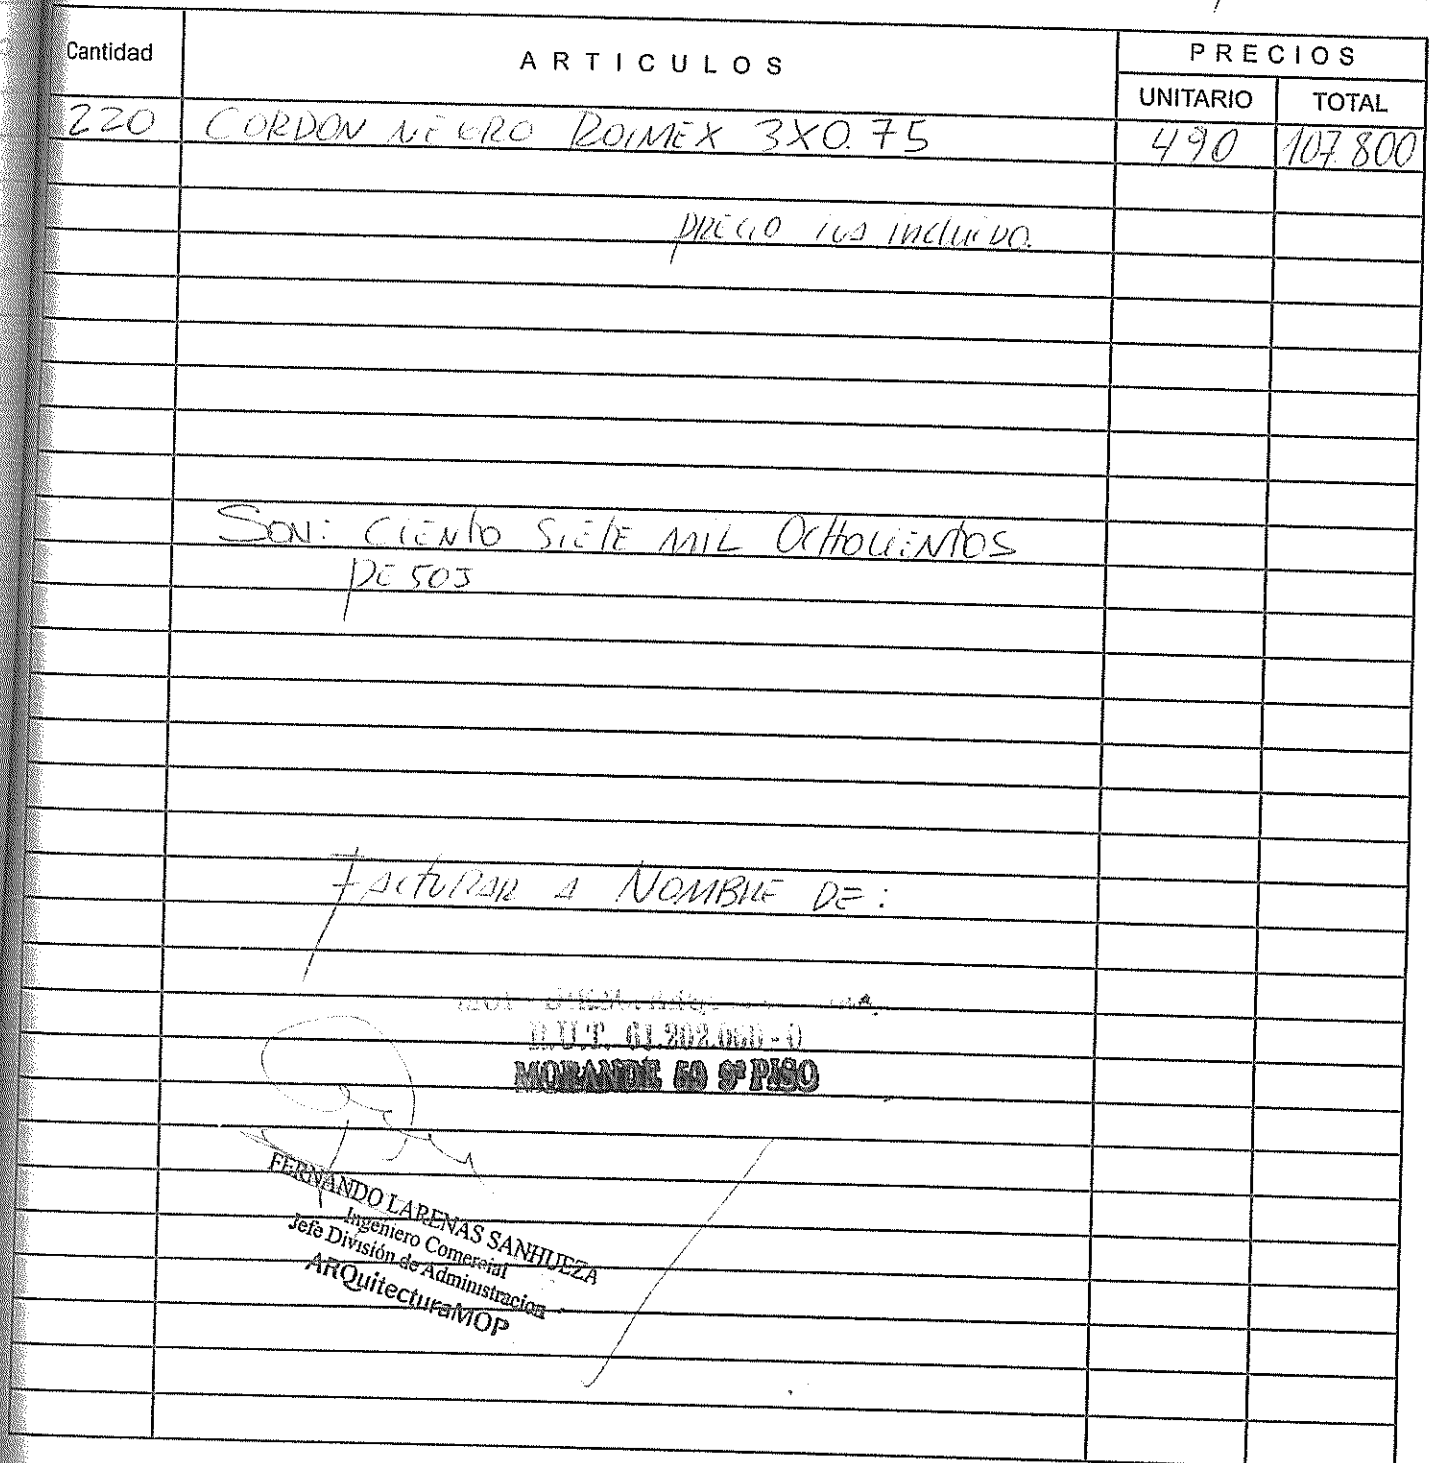 Cantidad ARTICULOS PRECIOS
UNITARIO TOTAL
220 CORDON NEGRO ROIMEX 3X0.75 490 107.800
PRECIO IVA INCLUIDO.
SON: CIENTO SIETE MIL OCHOCIENTOS
PESOS
FACTURAR A NOMBRE DE:
R.U.T. 61.202.000-0
MORANDE 59 9º PISO
FERNANDO LARENAS SANHUEZA
Ingeniero Comercial
Jefe División de Administracion
ARQuitecturaMOP